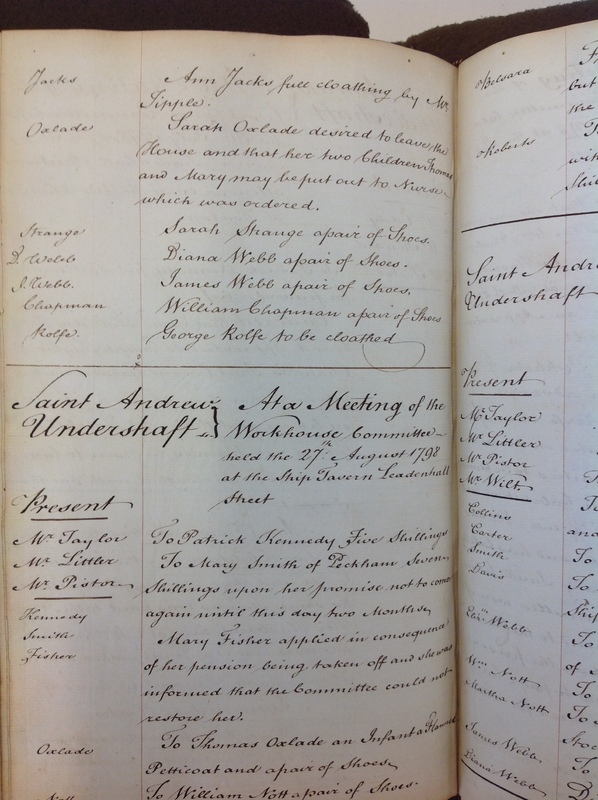 Jacks Ann Jacks full cloathing by Mr.
Tipple.
Oxlade Sarah Oxlade desired to leave the
House and that her two Children Thomas
and Mary may be put out to Nurse
which was ordered.
Strange Sarah Strange a pair of Shoes.
D. Webb Diana Webb a pair of Shoes.
J. Webb. James Webb a pair of Shoes.
Chapman William Chapman a pair of Shoes
Rolfe. George Rolfe to be cloathed
Saint Andrew } At a Meeting of the
Undershaft Workhouse Committee
held the 27th August 1798
at the Ship Tavern Leadenhall
Street
Present
Mr. Taylor To Patrick Kennedy Five Shillings
Mr. Littler To Mary Smith of Peckham Seven
Mr. Pistor Shillings upon her promise not to come
Kennedy again until this day two Months
Smith Mary Fisher applied in consequence
Fisher of her pension being taken off and she was
informed that the Committee could not
restore her.
Oxlade To Thomas Oxlade an Infant a Flannel
Petticoat and a pair of Shoes
Nott To William Nott a pair of Shoes.
Belsara
but
the
Roberts
with
Saint Andre
Undershaft
Present
Mr. Taylor
Mr. Littler
Mr. Pistor
Mr. Wilt.
Collins
Carter and
Smith To
Davis To
Elizth Webb Ship
To
Wm. Nott of
Martha Nott To
To
James Webb
Diana Webb